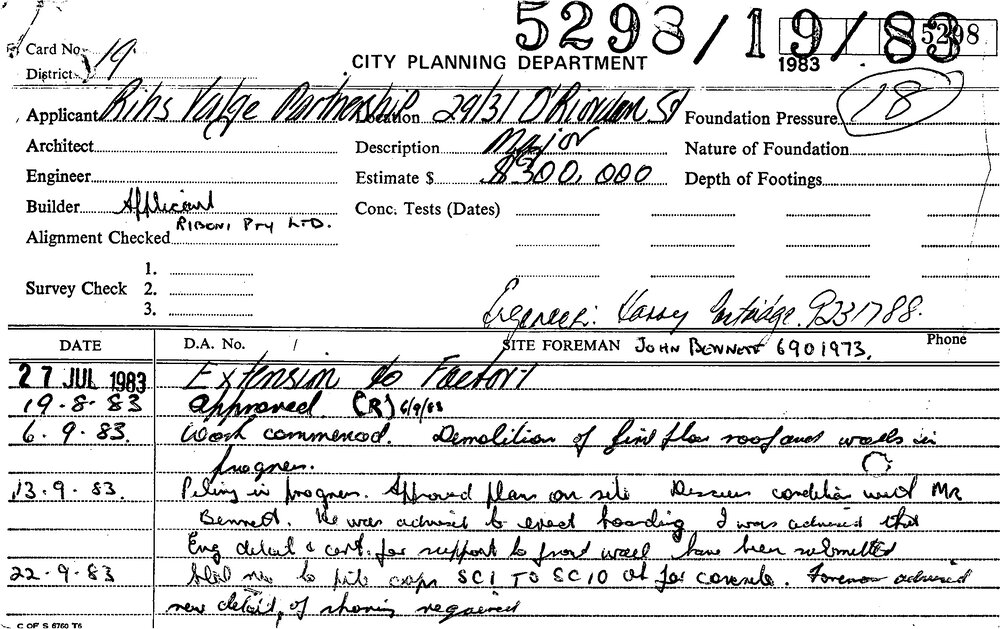 5298/19/83
5298
1983
Card No. 19
District
CITY PLANNING DEPARTMENT
Applicant Rihs Valge Partnership Location 29/31 O'Riordan St Foundation Pressure
18
Architect Description Major Nature of Foundation
Engineer Estimate $ $300,000 Depth of Footings
Builder Applicant Conc. Tests (Dates)
RIBONI PTY LTD.
Alignment Checked
1.
Survey Check 2.
3.
Engineer: Harry Partridge. 9231788.
DATE D.A. No. SITE FOREMAN JOHN BENNETT 6901973. Phone
27 JUL 1983 Extension to Factory
19.8.83 approved. (R) 6/9/83
6.9.83. Work commenced. Demolition of first floor roof and walls in
progress.
13.9.83. Piling in progress. Approved plans on site Discuss condition with Mr
Bennett. He was advised to erect hoarding I was advised that
Eng detail & cert. for support to front wall have been submitted
22.9.83 Steel to pile caps SC1 TO SC10 OK for concrete. Foreman advised
new detail, of shoring required
C OF S 6760 T6